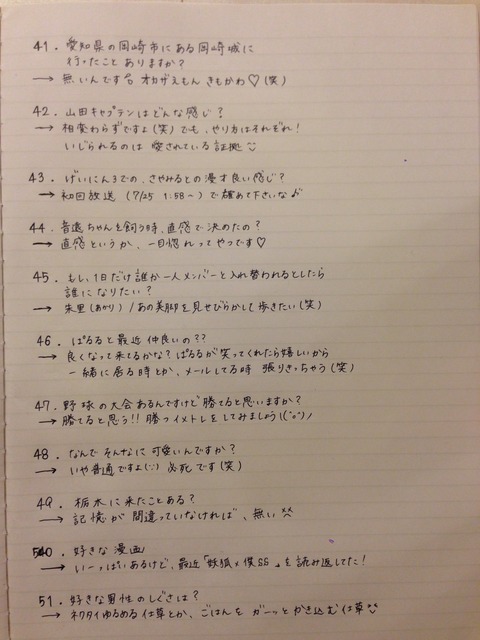 41. 愛知県の岡崎市にある岡崎城に
行ったこと ありますか?
→ 無いんです オカザえもん きもかわ♡(笑)
42. 山田キャプテンはどんな感じ?
→ 相変わらずですよ(笑)でも、やり方はそれぞれ!
いじられるのは 愛されている証拠
43. げいにん3での、さやみるとの漫才良い感じ?
→ 初回放送 (7/25 1:58~)で確めて下さいな♪
44. 音遠ちゃんを飼う時、直感で決めたの?
→ 直感というか、一目惚れってやつです♡
45. もし、1日だけ誰か一人メンバーと入れ替われるとしたら
誰になりたい?
→ 朱里(あかり)/あの美脚を見せびらかして歩きたい(笑)
46. ぱるると最近仲良いの??
→ 良くなって来てるかな?ぱるるが笑ってくれたら嬉しいから
一緒に居る時とか、メールしてる時 張りきっちゃう(笑)
47. 野球の大会あるんですけど勝てると思いますか?
→ 勝てると思う!!勝つイメトレをしてみましょう\(^o^)/
48. なんで そんなに可愛いんですか?
→ いや普通ですよ(··) 必死です(笑)
49. 栃木に来たことある?
→ 記憶が 間違っていなければ、無い
50. 好きな漫画
→ いーっぱいあるけど、最近「妖狐×僕SS」を読み返してた!
51. 好きな男性のしぐさは?
→ ネクタイゆるめる仕草とか、ごはんを ガーッとかき込む仕草